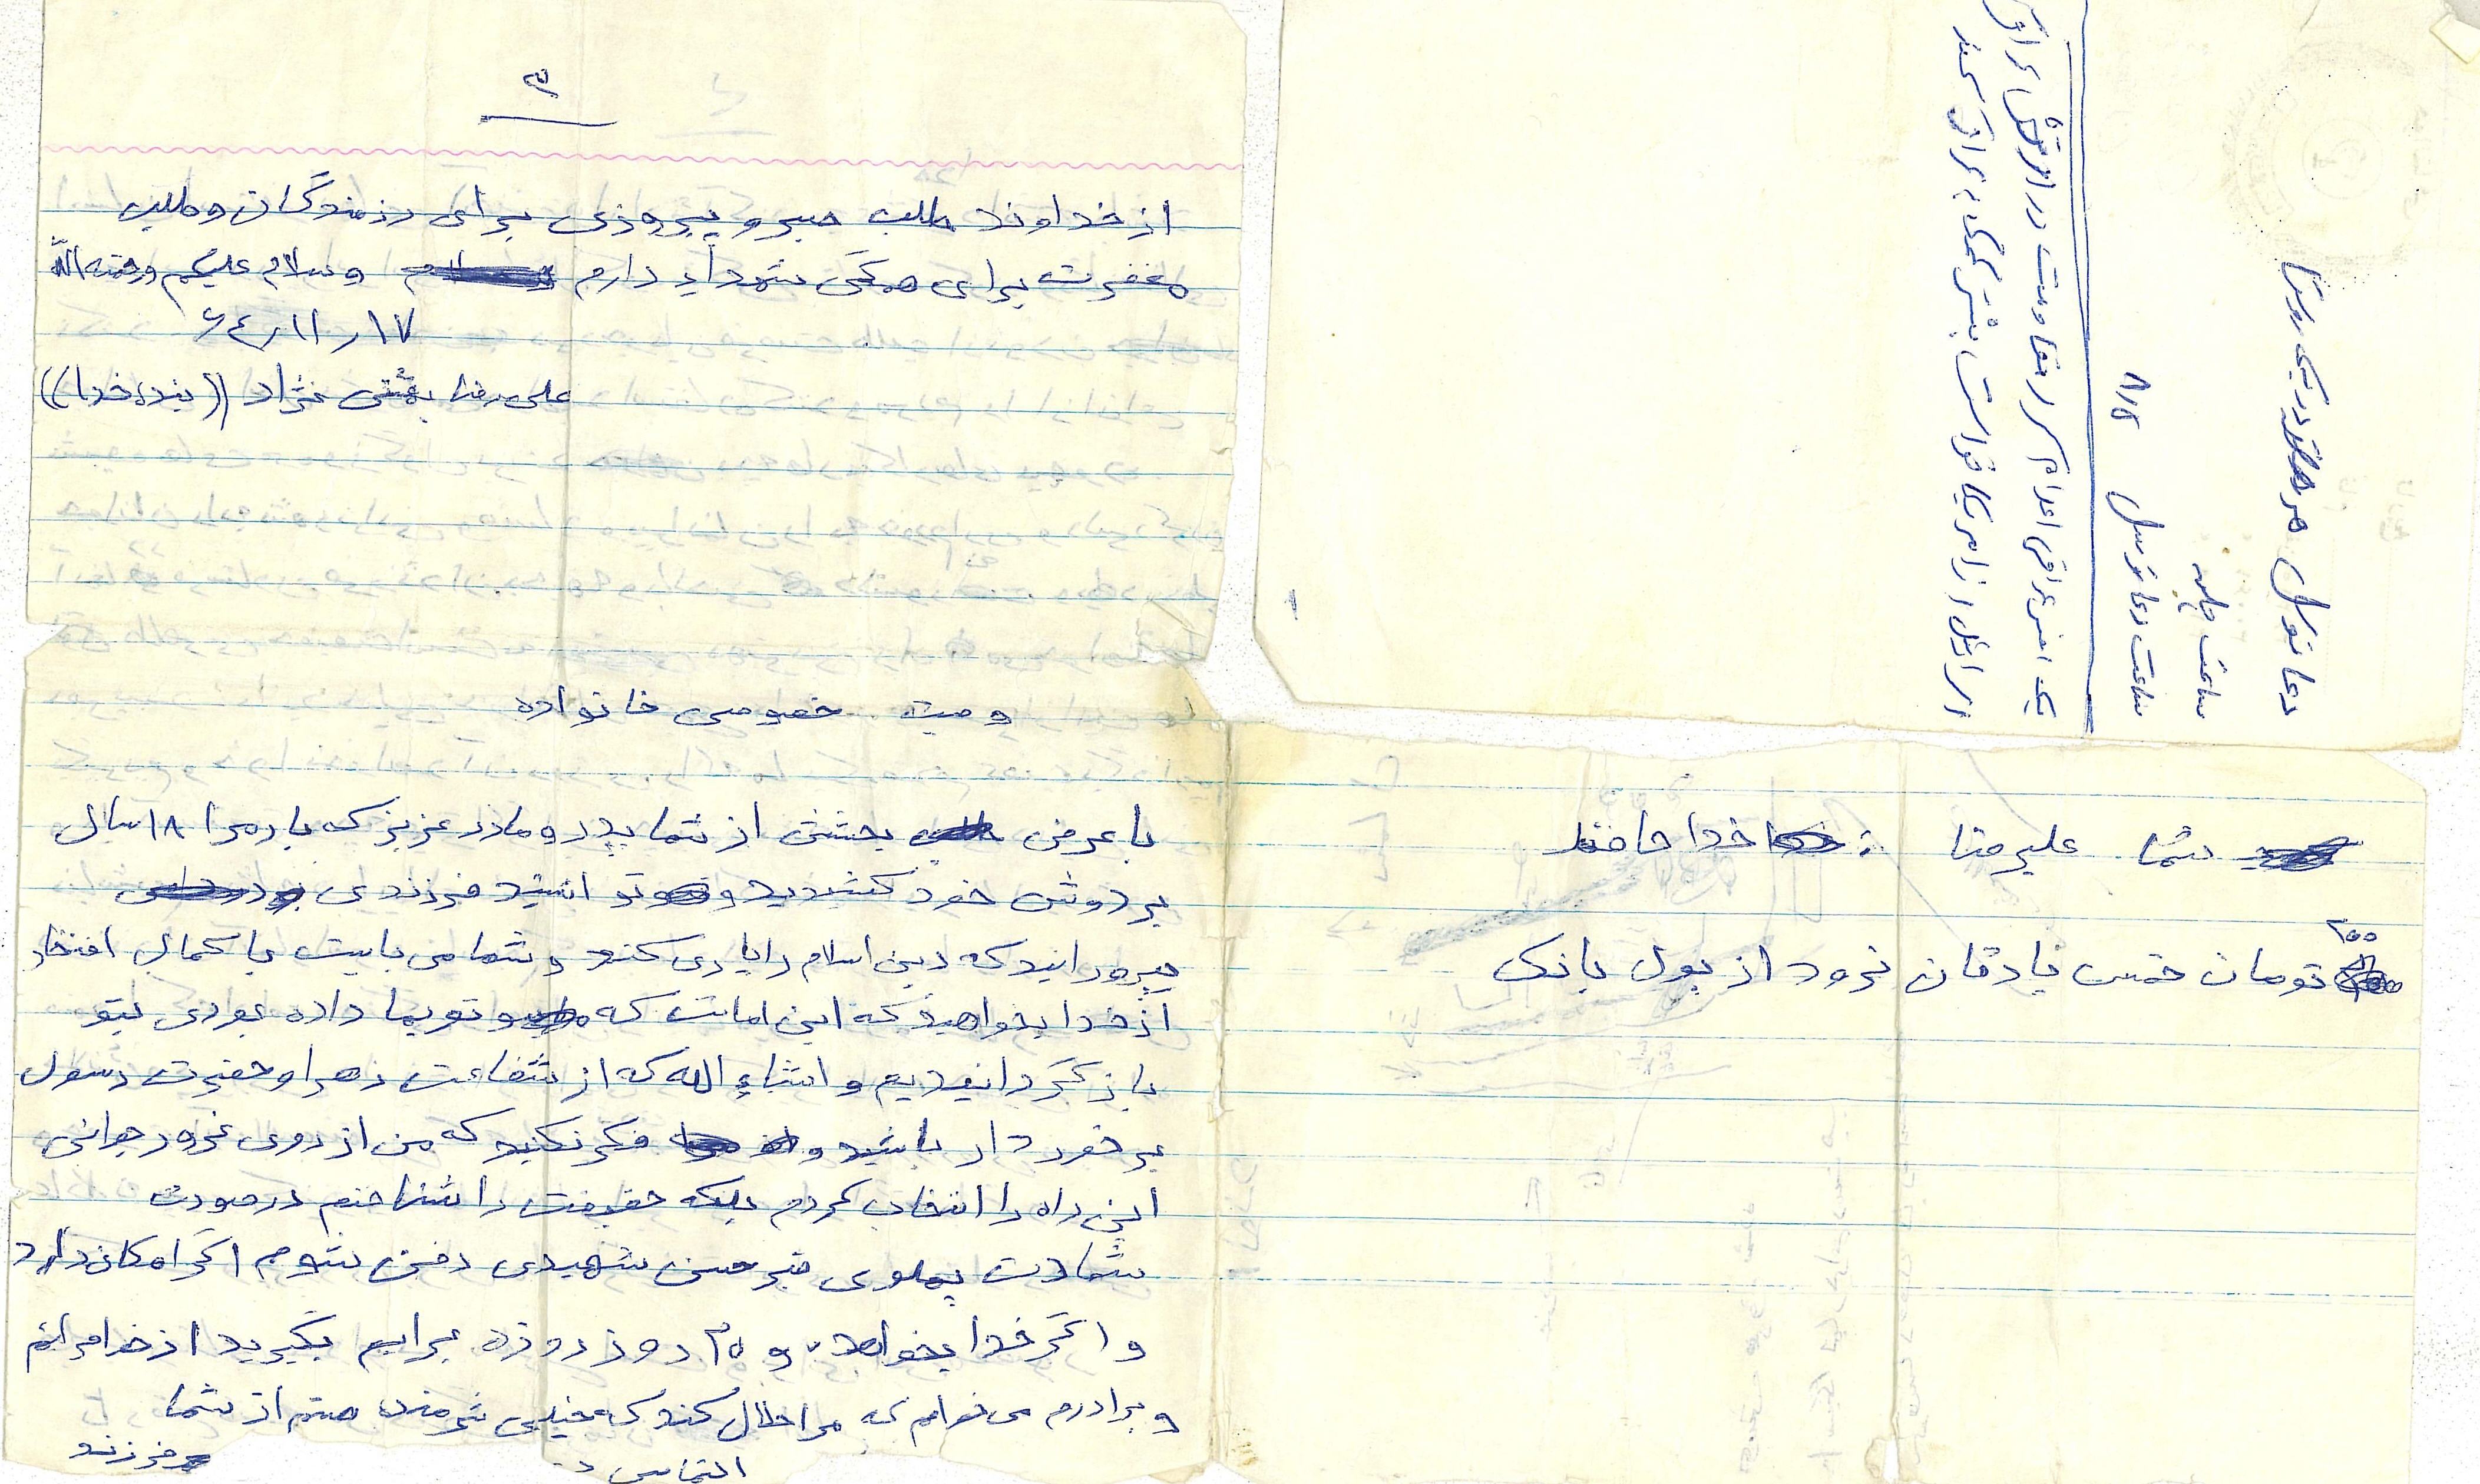 ۳
از خداوند طلب صبر و پیروزی برای رزمندگان و طلب
مغفرت برای همگی شهداء دارم وسلام علیکم ورحمته الله
۱۷ ر ۱۱ ر ۶۴
علیرضا بهشتی نژاد ((بنده خدا))
وصیت خصوصی خانواده
با عرض بخشش از شما پدر و مادر عزیز که بار مرا ۱۸ سال
بر دوش خود کشیدید و توانستید فرزندی
بپرورانید که دین اسلام را یاری کند و شما می بایست با کمال افتخار
از خدا بخواهید که این امانت که تو بما داده بودی بتو
باز گردانیدیم و انشاء الله که از شفاعت زهرا و حضرت رسول
برخوردار باشید و فکر نکنید که من از روی غرور جوانی
این راه را انتخاب کردم بلکه حقیقت را شناختم در صورت
شهادت پهلوی قبر حسن شهیدی دفن شوم اگر امکان دارد
و اگر خدا بخواهد و ۲۰ روز روزه برایم بگیرید از خواهرانم
و برادرم می خواهم که مرا حلال کنند که خیلی شرمنده هستم از شما
التماس د
فرزند
شما علیرضا : خدا حافظ
۲۰۰
تومان خمس یادتان نرود از پول بانک
دعا توسل
ساعت جلسه
ساعت دعا توسل ۸/۵
یک افسر عراقی اعدام کرد
اسرائیل از امریکا خواست بیشتر کمک به عراق کند